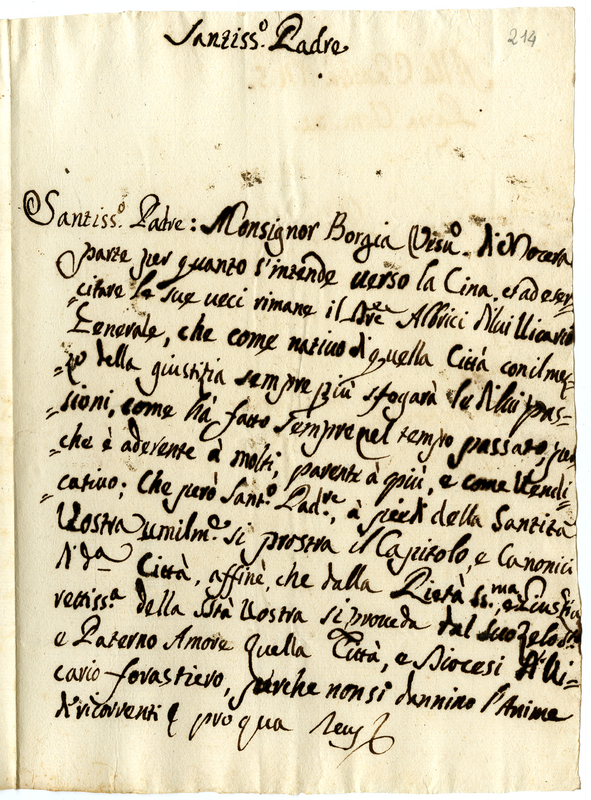 Santiss.º Padre
214
Santiss.º Padre: Monsignor Borgia Vescº. di Nocera
parte per quanto s'intende verso la Cina, et ad eser=
=citare le sue veci rimane il Albrici di lui Vicario
Generale, che come nativo di quella Città con il mez=
=zo della giustizia sempre più sfogarà le di lui pas=
=sioni, come hà fatto sempre nel tempo passato, per
=che è aderente à molti, parente à più, e come Vendi=
=cativo; Che però Sant.º Pad.re, à piedi della Santità
Vostra umilm.e si prostra il Capitolo, e Canonici
di d.a Città, affinè, che dalla Pietà ss.ma, e Giustizia
rettiss.a della Stà Vostra si proveda dal suo Zelo S.to
e Paterno Amore quella Città, e Diocesi di Vi=
cario forastiero, perche non si dannino l'Anime
de ricorrenti pro qua